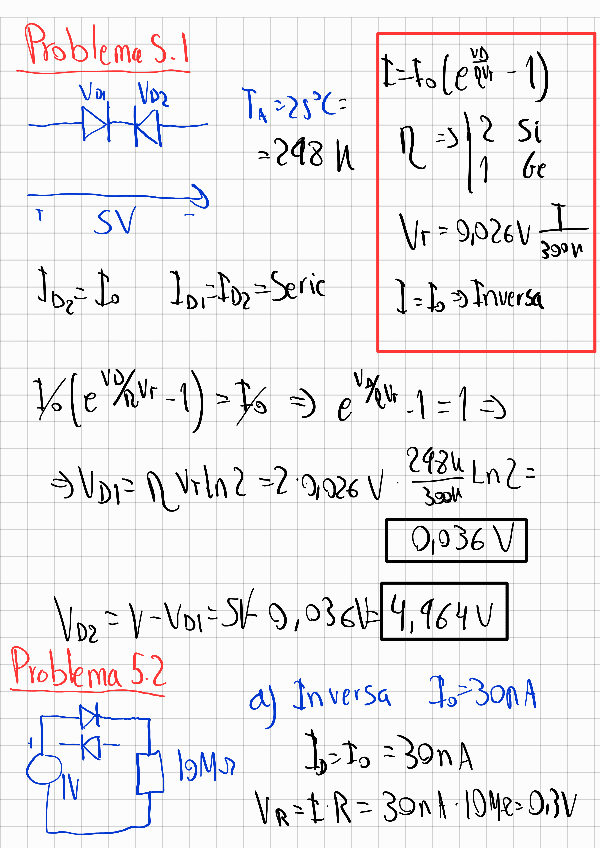 Problema 5.1
V_D1 V_D2
+ 5V -
T_A = 25°C =
= 298 K
I = I_0 (e^{V_D/ηV_T} - 1)
η => | 2 Si
| 1 Ge
V_T = 0,026V T/300K
I = I_0 => Inversa
I_D2 = I_0 I_D1 = I_D2 = Serie
I_0 (e^{V_D/ηV_T} - 1) = I_0 => e^{V_D/ηV_T} - 1 = 1 =>
=> V_D1 = η V_T ln 2 = 2 · 0,026 V · 298K/300K Ln 2 =
0,036 V
V_D2 = V - V_D1 = 5V - 0,036V = 4,964 V
Problema 5.2
+ 1V 10MΩ
a) Inversa I_0 = 30nA
I_D = I_0 = 30nA
V_R = I · R = 30nA · 10MΩ = 0,3V